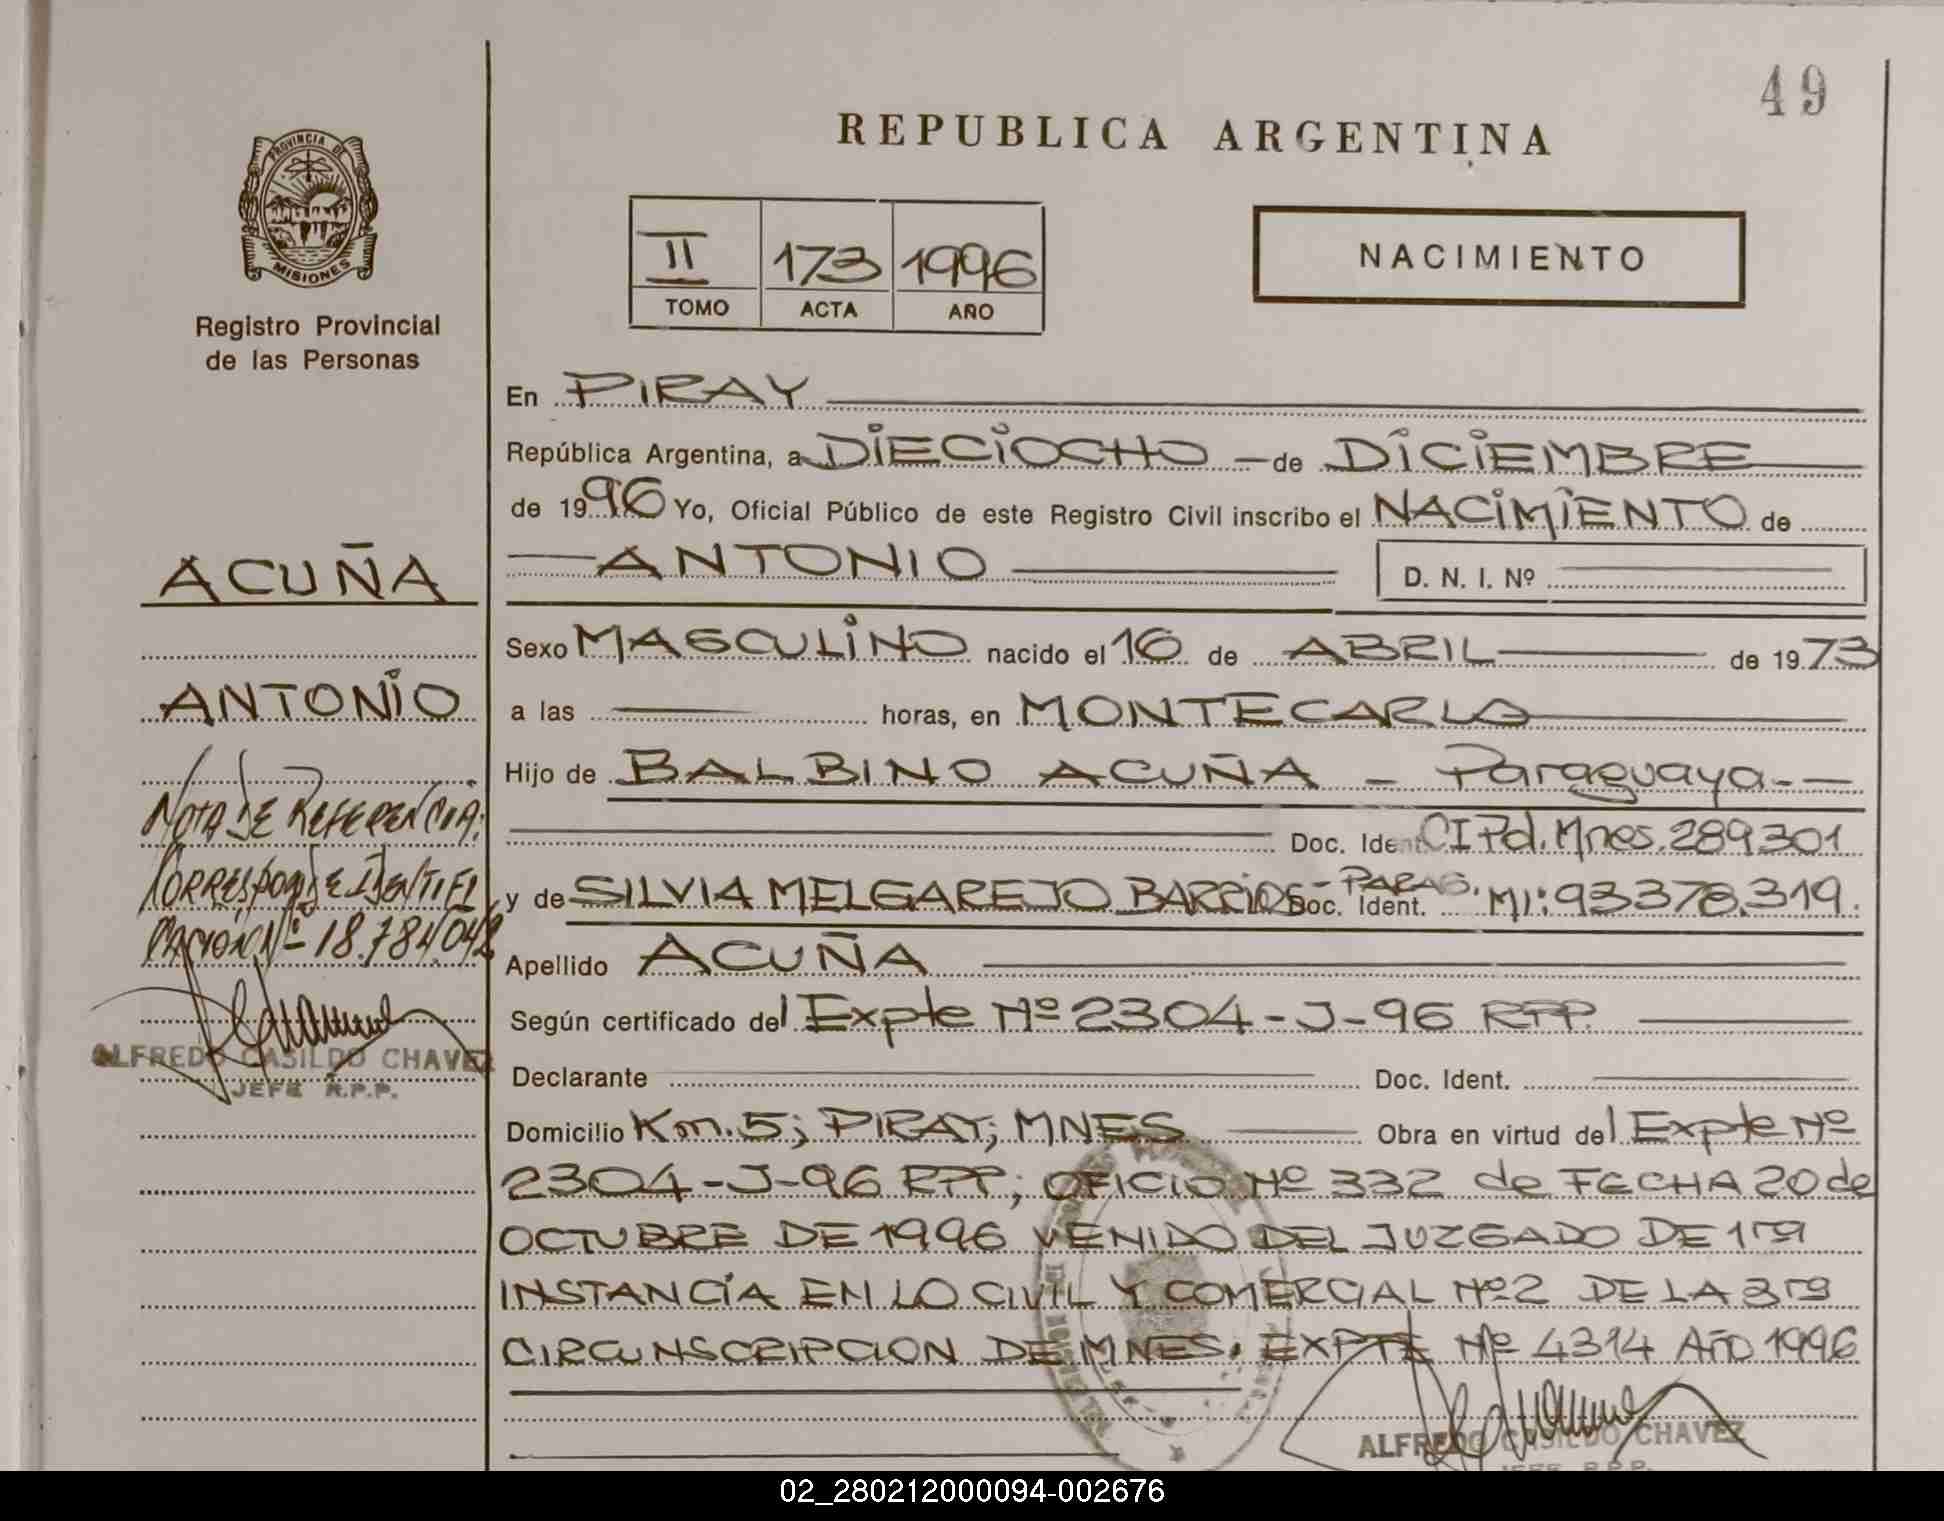 49
REPUBLICA ARGENTINA
PROVINCIA DE
MISIONES
Registro Provincial
de las Personas
II 173 1996
TOMO ACTA AÑO
NACIMIENTO
En PIRAY
República Argentina, a DIECIOCHO de DICIEMBRE
de 1996 Yo, Oficial Público de este Registro Civil inscribo el NACIMIENTO de
ANTONIO D. N. I. Nº
Sexo MASCULINO nacido el 16 de ABRIL de 1973
a las horas, en MONTECARLO
Hijo de BALBINO ACUÑA - Paraguaya-
Doc. Ident CI Pd. Mnes. 289301
y de SILVIA MELGAREJO BARRIOS - PARAG. Doc. Ident. MI: 93378.319.
Apellido ACUÑA
Según certificado del Expte Nº 2304-J-96 RPP.
Declarante Doc. Ident.
Domicilio Km. 5; PIRAY; MNES Obra en virtud del Expte Nº
2304-J-96 RPP; OFICIO Nº 332 de FECHA 20 de
OCTUBRE DE 1996 VENIDO DEL JUZGADO DE 1ra
INSTANCIA EN LO CIVIL Y COMERCIAL Nº2 DE LA 3ra
CIRCUNSCRIPCION DE MNES. EXPTE Nº 4314 AÑO 1996
ALFREDO CASILDO CHAVEZ
JEFE R.P.P.
ACUÑA
ANTONIO
NOTA DE REFERENCIA:
CORRESPONDE IDENTIFI
CACION Nº 18.784.042
ALFREDO CASILDO CHAVEZ
JEFE R.P.P.
02_280212000094-002676